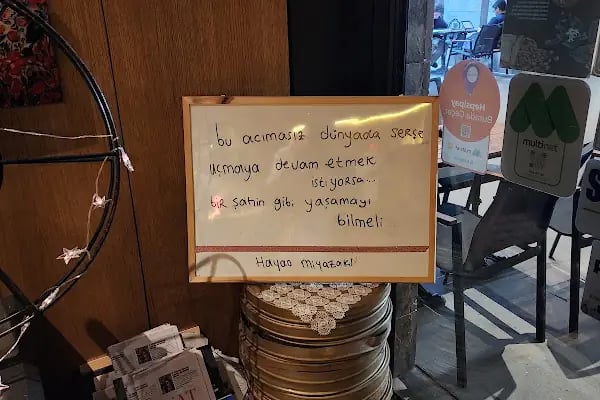 bu acımasız dünyada serçe
uçmaya devam etmek
istiyorsa...
bir şahin gibi yaşamayı
bilmeli
Hayao miyazaki
Hepsipay
Burada Geçer
multinet